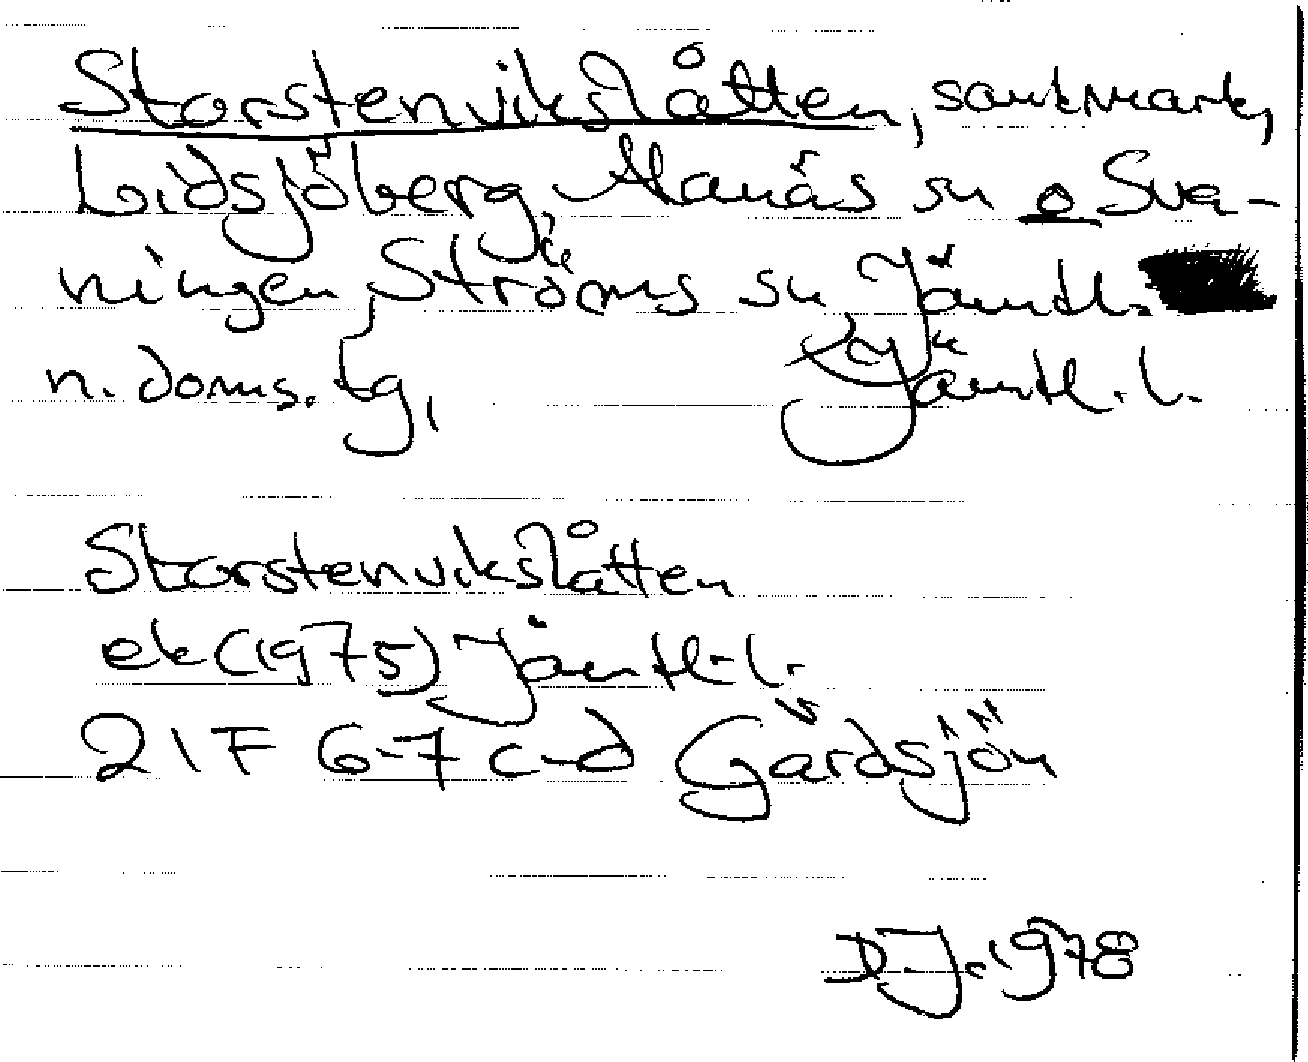 Storstenvikslåtten, sankmark,
Lidsjöberg, Alanäs sn o Sva-
ningen, Ströms sn Jämtl.
n. doms. tg, Jämtl. l.
Storstenvikslåtten
ek (1975) Jämtl. l.
21F 6-7 c-d Gärdsjön
DJ. 1978